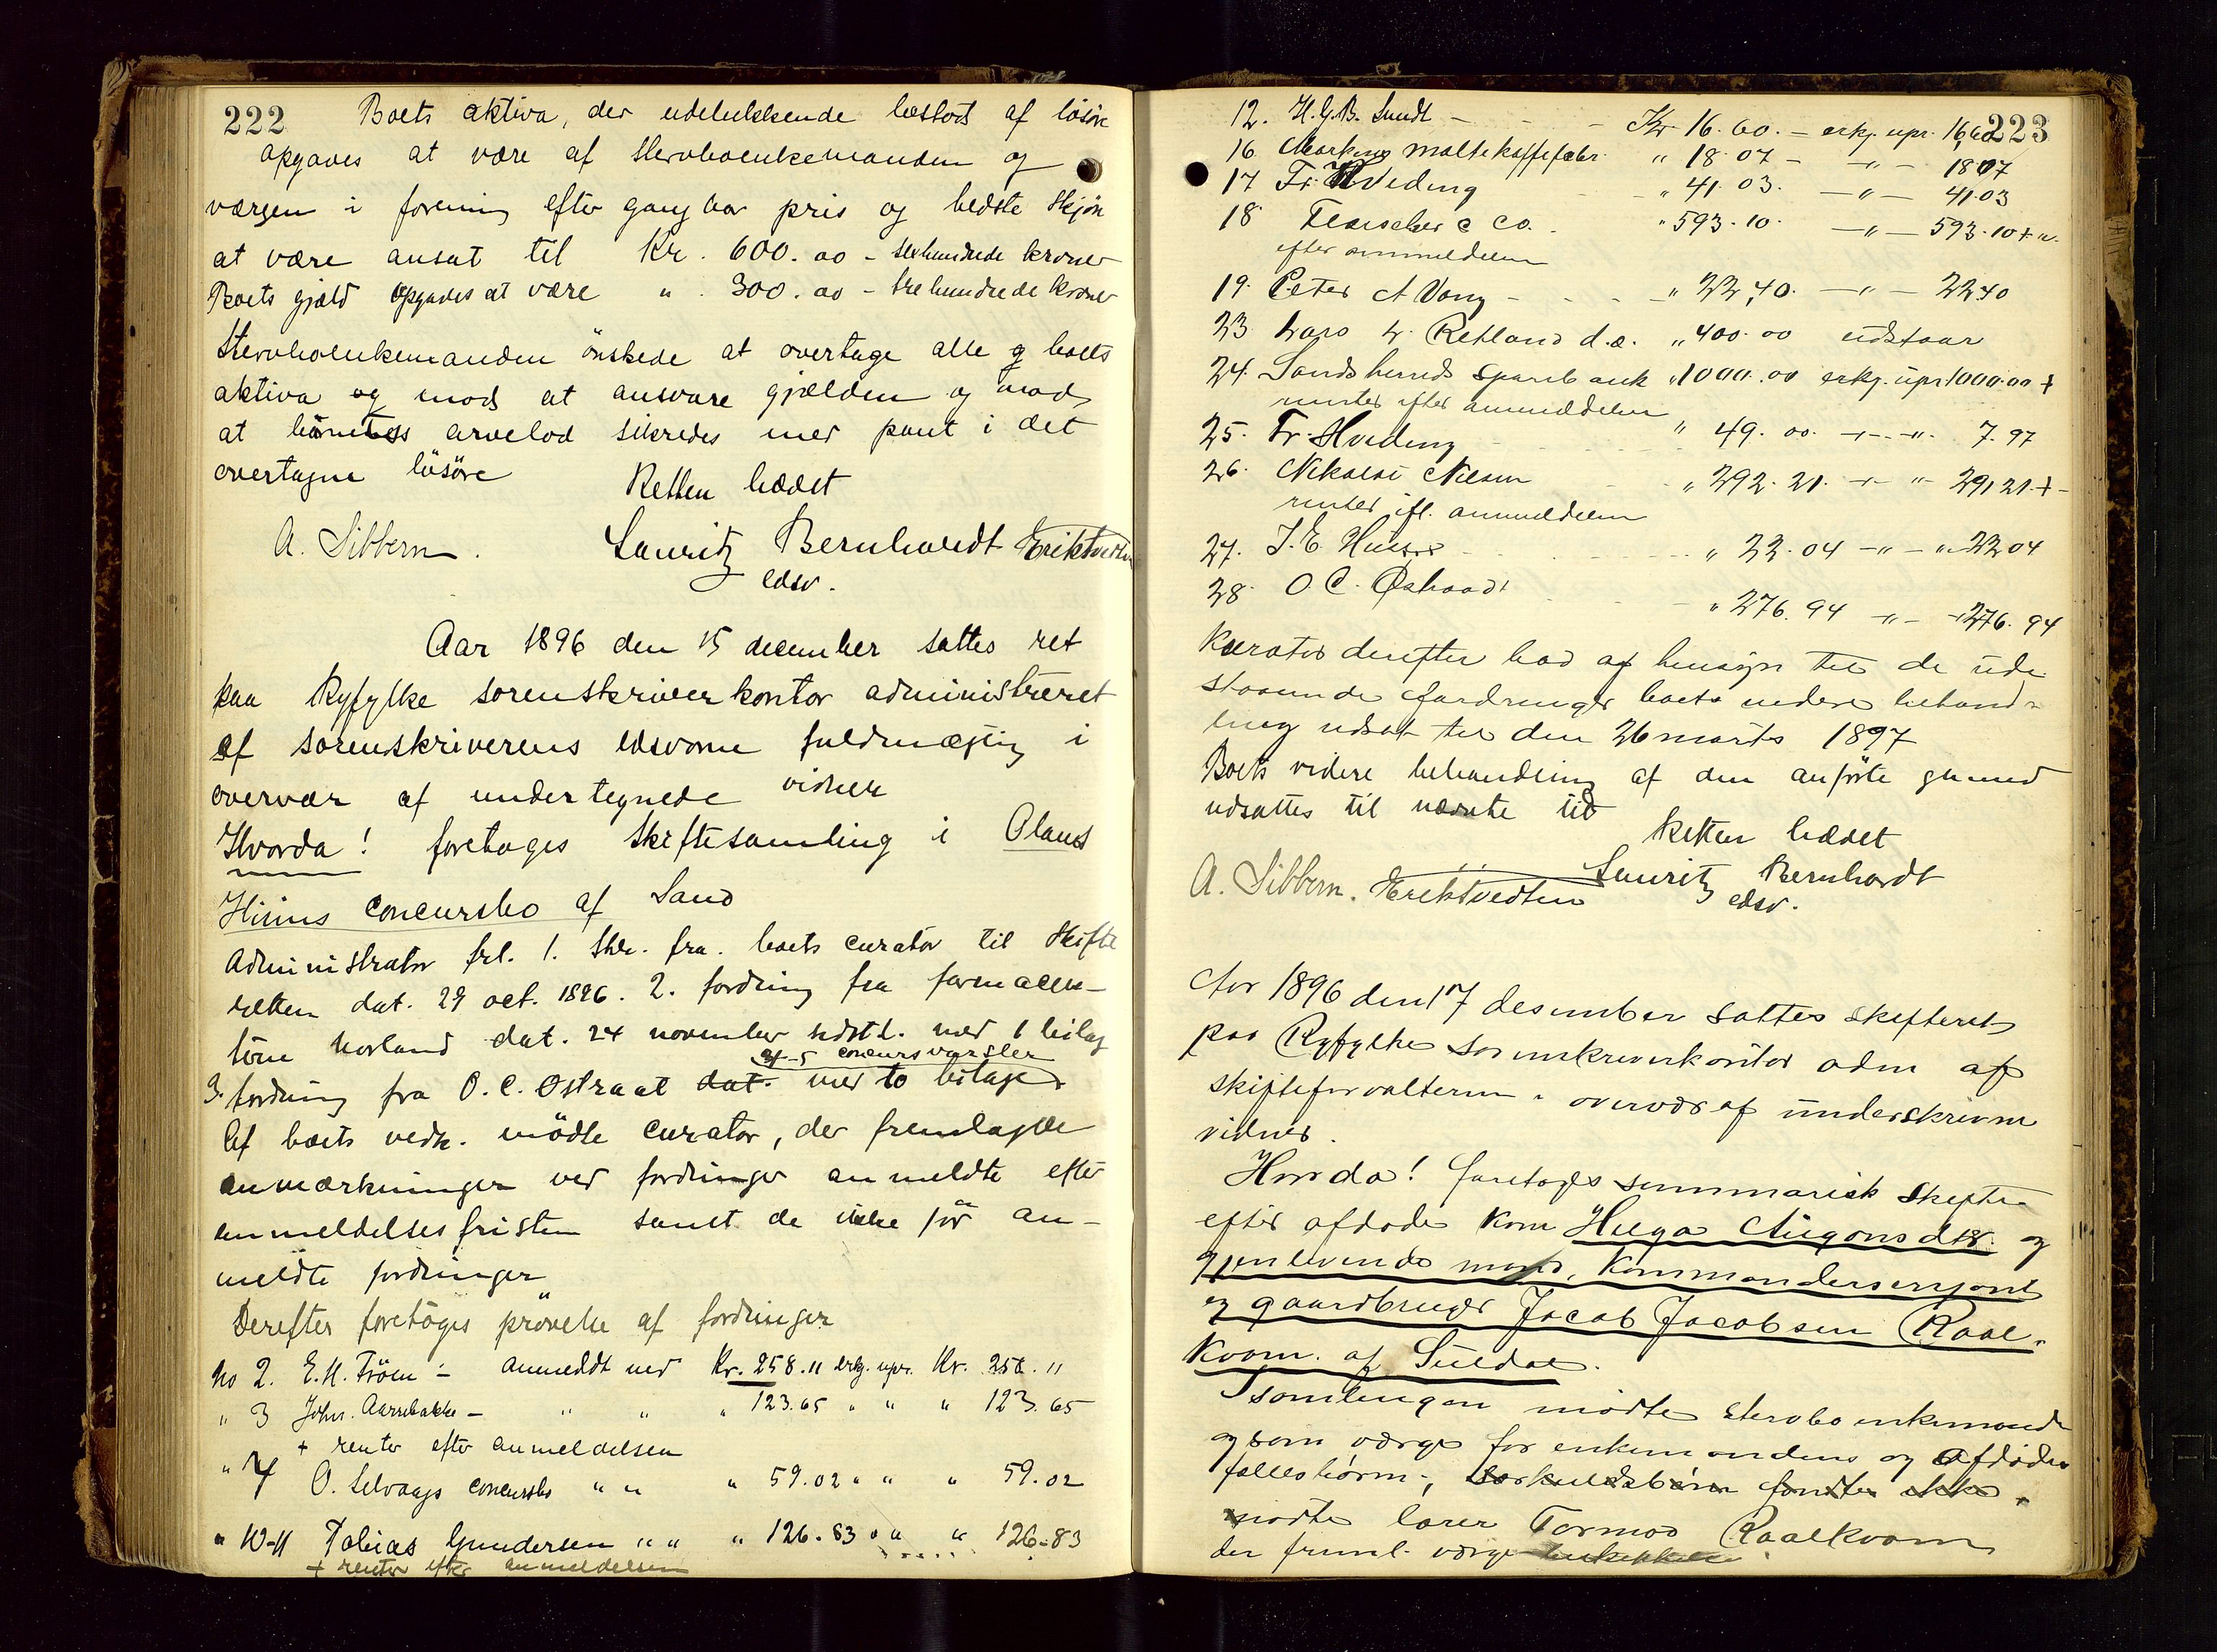 222
Boets aktiva, der udelukkende bestod af løsøre
opgaves at være af stervboenkemanden og
værgen i forening efter gangbar pris og bedste skjøn
at være ansat til Kr. 600.00 - sexhundrede kroner
Boets gjæld opgaves at være " 300.00 - trehundrede kroner
Stervboenkemanden ønskede at overtage alle boets
aktiva og mod at ansvare gjælden og mod
at arvelod sikredes med pant i det
overtagne løsøre
Retten hævet
A. Sibbern. Lauritz Bernhardt Erik Tvedten
edsv.
Aar 1896 den 15 december sattes ret
paa Ryfylke sorenskriverkontor administreret
af sorenskriverens edsvorne fuldmægtig i
overvær af undertegnede vidner
Hvorda! foretoges skiftesamling i Olaus
Hiims concursbo af Sand
Administrator frl. 1. skr. fra boets curator til skifte
retten dat. 29 oct. 1896. 2. fordring fra farmaceu-
terne Hovland dat. 24 november sidstl. med 1 bilag
af 5 concursvarsler
3. fordring fra O. C. Østraat dat. med to bilage
Af boets vedk. mødte curator, der fremlagde
anmærkninger ved fordringer anmeldte efter
anmeldelsesfristen samt de ikke før an-
meldte fordringer
Derefter foretoges prøvelse af fordringer
No 2. E. H. Frøen - anmeldt med Kr. 258.11 erkj. upr. Kr. 258.11
" 3 John. Aarrebakke - " " " 123.65 " " " 123.65
+ renter efter anmeldelsen
" 7 O. Selvaags concursbo " " " 59.02 " " " 59.02
" 10-11 Tobias Gundersen " " " 126.83 " " " 126.83
+ renter efter anmeldelsen
223
12. H. G. B. Sundt - - - Kr 16.60. - erkj. upr. 16,60
16 maltkaffefabr. " 18.07 - -"- 18.07
17 Fr. Hveding - " 41.03. -"- 41.03
18 & Co. " 593.10. -"- 593.10 +
efter anmeldelsen
19. Peter A Vang - - - " 22,40. -"- 22.40
23 Lars L. Retland d.æ. " 400.00 udstaar
24. Sands herreds sparebank " 1000.00 erkj. upr 1000.00 +
renter efter anmeldelsen
25. Fr. Hveding - " 49.00 -"- 7.97
26. Nikolai Nilsen " 292.21. -"- 291 21. +
renter ifl. anmeldelsen
27. J. E. - " 22.04 -"- " 22 04
28. O C. " 276.94 -"- 276.94
Kurator derefter bad af hensyn til de ude
staaende fordringer boets videre behand-
ling udsat til den 26 marts 1897
Boets videre behandling af den anførte grund
udsattes til nævnte tid
Retten hævet
A. Sibbern. Erik Tvedten Lauritz Bernhardt
edsv.
Aar 1896 den 17 desember sattes skifteret
paa Ryfylke sorenskriverkontor adm af
skifteforvalteren i overvær af underskrevne
vidner.
Hvorda! foretoges summarisk skifte
efter afdøde kone Helga Augonsdtr. og
gjenlevende mand, kommandersersjant
og gaardbruger Jacob Jacobsen Raal-
kvam. af Suldal.
I samlingen mødte stervboenkemand
og som værge for enkemandens og afdødes
fællesbørn, særkuldsbørn fandtes ikke,
mødte lærer Tormod Raalkvam
der freml. værge